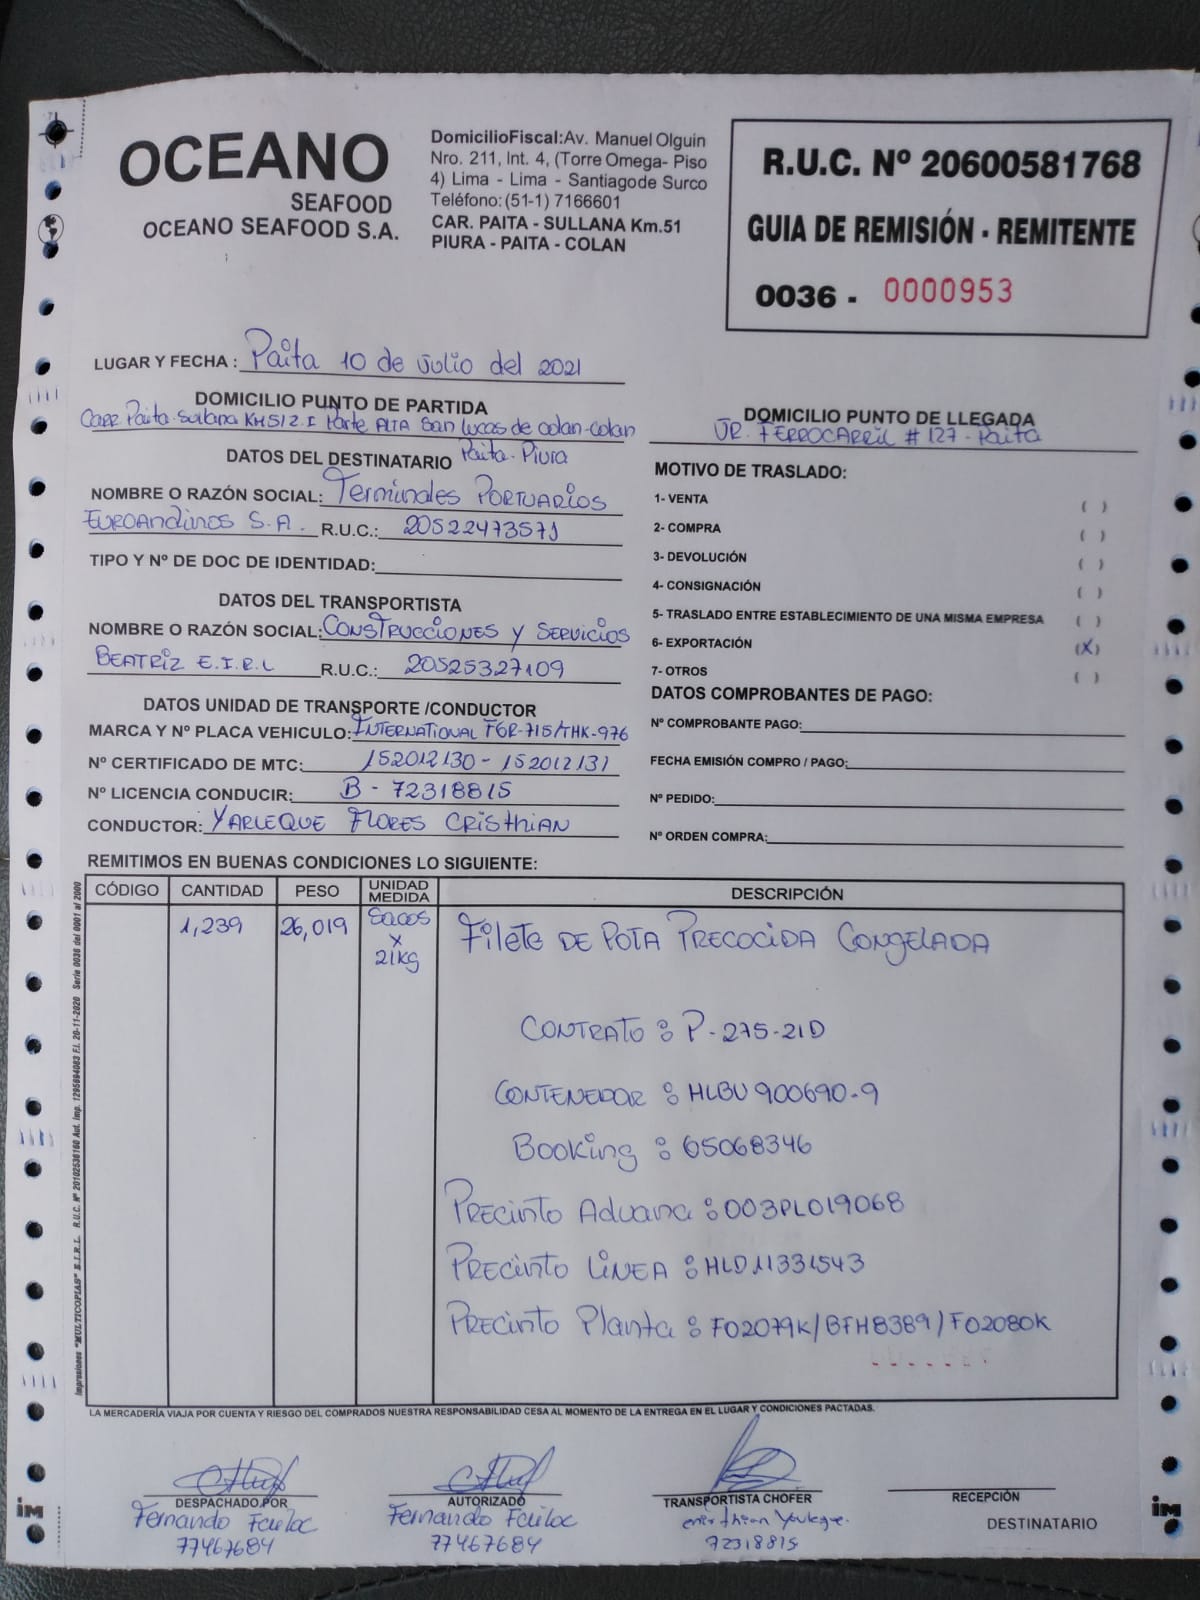 OCEANO
SEAFOOD
OCEANO SEAFOOD S.A.
DomicilioFiscal:Av. Manuel Olguin
Nro. 211, Int. 4, (Torre Omega- Piso
4) Lima - Lima - Santiagode Surco
Teléfono:(51-1) 7166601
CAR. PAITA - SULLANA Km.51
PIURA - PAITA - COLAN
R.U.C. Nº 20600581768
GUIA DE REMISIÓN - REMITENTE
0036 - 0000953
LUGAR Y FECHA : Paita 10 de Julio del 2021
DOMICILIO PUNTO DE PARTIDA
Carr Paita-Sullana KM512.I Parte ALTA San Lucas de colan-colan
Paita-Piura
DOMICILIO PUNTO DE LLEGADA
JR. FERROCARRIL # 127-Paita
DATOS DEL DESTINATARIO
NOMBRE O RAZÓN SOCIAL: Terminales PORTUARIOS
EUROAndinos S.A. R.U.C.: 20522473571
TIPO Y Nº DE DOC DE IDENTIDAD:
DATOS DEL TRANSPORTISTA
NOMBRE O RAZÓN SOCIAL: CONSTRUCCIONES y SERVICIOS
BEATRIZ E.I.R.L R.U.C.: 20525327109
DATOS UNIDAD DE TRANSPORTE /CONDUCTOR
MARCA Y Nº PLACA VEHICULO: INTERNATIONAL F6R-715/THK-976
Nº CERTIFICADO DE MTC: 152012130 - 152012131
Nº LICENCIA CONDUCIR: B - 72318815
CONDUCTOR: YARLEQUE FLORES CRISTHIAN
MOTIVO DE TRASLADO:
1- VENTA ( )
2- COMPRA ( )
3- DEVOLUCIÓN ( )
4- CONSIGNACIÓN ( )
5- TRASLADO ENTRE ESTABLECIMIENTO DE UNA MISMA EMPRESA ( )
6- EXPORTACIÓN (X)
7- OTROS ( )
DATOS COMPROBANTES DE PAGO:
Nº COMPROBANTE PAGO:
FECHA EMISIÓN COMPRO / PAGO:
Nº PEDIDO:
Nº ORDEN COMPRA:
REMITIMOS EN BUENAS CONDICIONES LO SIGUIENTE:
CÓDIGO CANTIDAD PESO UNIDAD MEDIDA DESCRIPCIÓN
1,239 26,019 Sacos x 21kg Filete DE POTA PRECOCIDA CONGELADA
CONTRATO : P-275-21D
CONTENEDOR : HLBU 900690-9
Booking : 65068346
PRECINTO Aduana : 003PL019068
PRECINTO LINEA : HLD11331543
PRECINTO Planta : F02079K/BFH8389/F02080K
Impresiones "MULTICOPIAS" E.I.R.L. R.U.C. Nº 20102536160 Aut. Imp. 1295694083 F.I. 20-11-2020 Serie 0036 del 0001 al 2000
LA MERCADERÍA VIAJA POR CUENTA Y RIESGO DEL COMPRADOS NUESTRA RESPONSABILIDAD CESA AL MOMENTO DE LA ENTREGA EN EL LUGAR Y CONDICIONES PACTADAS.
DESPACHADO POR
Fernando
77467684
AUTORIZADO
Fernando
77467684
TRANSPORTISTA CHOFER
72318815
RECEPCIÓN
DESTINATARIO
iM
iM